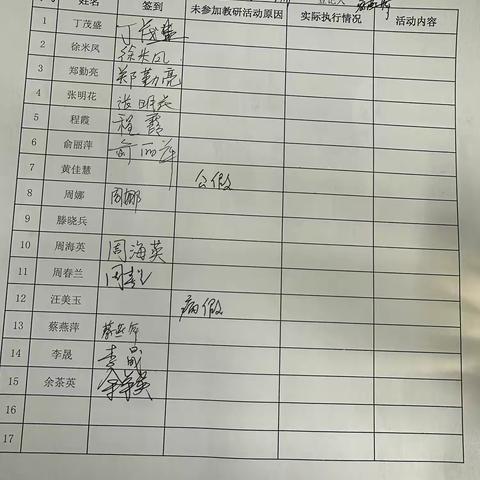 姓名 签到 未参加教研活动原因 实际执行情况 活动内容
1 丁茂盛 丁茂盛
2 徐米凤 徐米凤
3 郑勤亮 郑勤亮
4 张明花 张明花
5 程霞 程霞
6 俞丽萍 俞丽萍
7 黄佳慧 公假
8 周娜 周娜
9 滕晓兵
10 周海英 周海英
11 周春兰 周春兰
12 汪美玉 病假
13 蔡燕萍 蔡燕萍
14 李晟 李晟
15 余茶英 余茶英
16
17